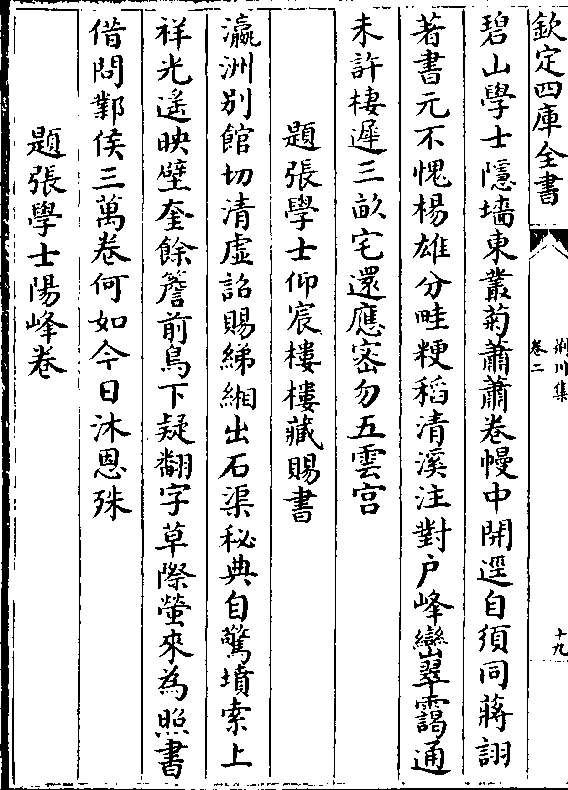 欽定四庫全書
荆川集
卷二
十九
碧山學士隱墻東叢菊蕭蕭卷幔中開逕自須同蔣詡
著書元不愧楊雄分畦粳稻清溪注對户峰巒翠靄通
未許棲遲三畝宅還應宻勿五雲宫
題張學士仰宸樓樓藏賜書
瀛洲别館切清虛詔賜綈緗出石渠秘典自驚墳索上
祥光遙映壁奎餘簷前鳥下疑翻字草際螢來為照書
借問鄴侯三萬卷何如今日沐恩殊
題張學士陽峰卷